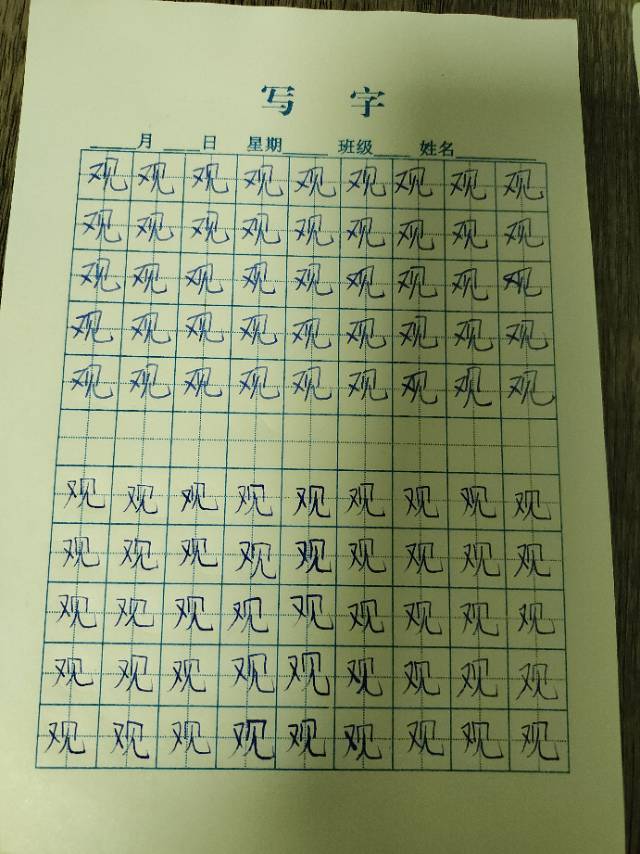 写 字
月 日 星期 班级 姓名
观 观 观 观 观 观 观 观 观
观 观 观 观 观 观 观 观 观
观 观 观 观 观 观 观 观 观
观 观 观 观 观 观 观 观 观
观 观 观 观 观 观 观 观 观
观 观 观 观 观 观 观 观 观
观 观 观 观 观 观 观 观 观
观 观 观 观 观 观 观 观 观
观 观 观 观 观 观 观 观 观
观 观 观 观 观 观 观 观 观